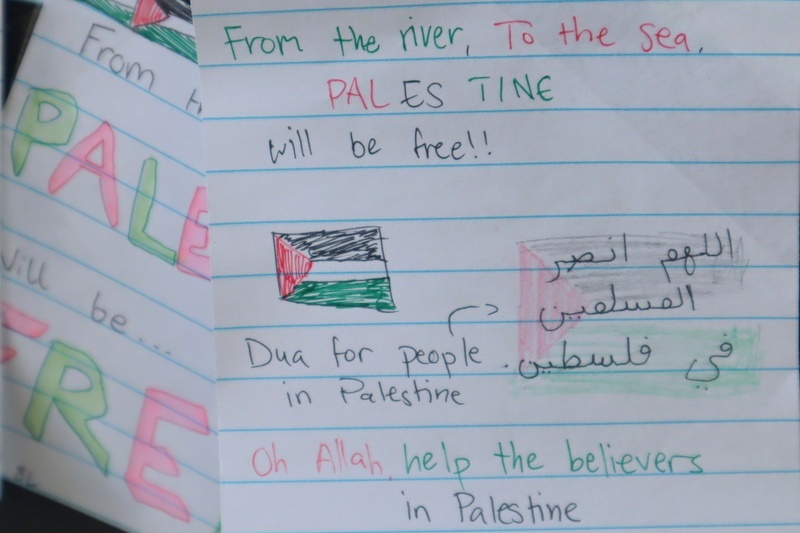 From the river, To the sea,
PALESTINE
will be free!!
اللهم انصر
المسلمين
في فلسطين
Dua for people
in Palestine
Oh Allah, help the believers
in Palestine
From
PALE
will be...
FRE